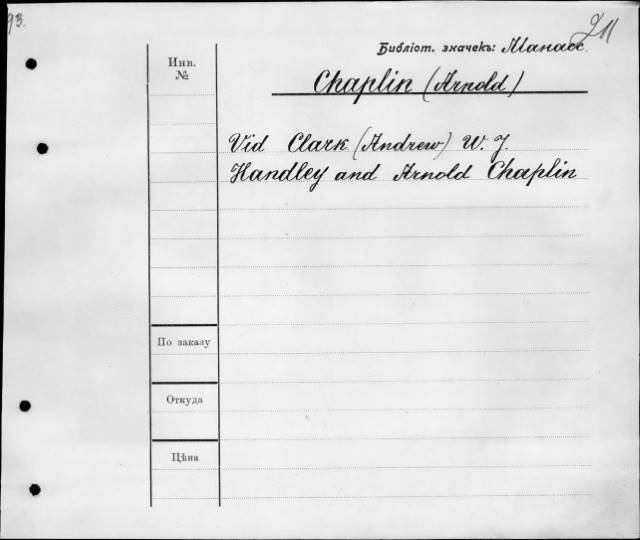 93.
Библіот. значекъ: Манасс.
Инв.
№
Chaplin (Arnold)
Vid Clark (Andrew) W. J.
Handley and Arnold Chaplin
По заказу
Откуда
Цѣна